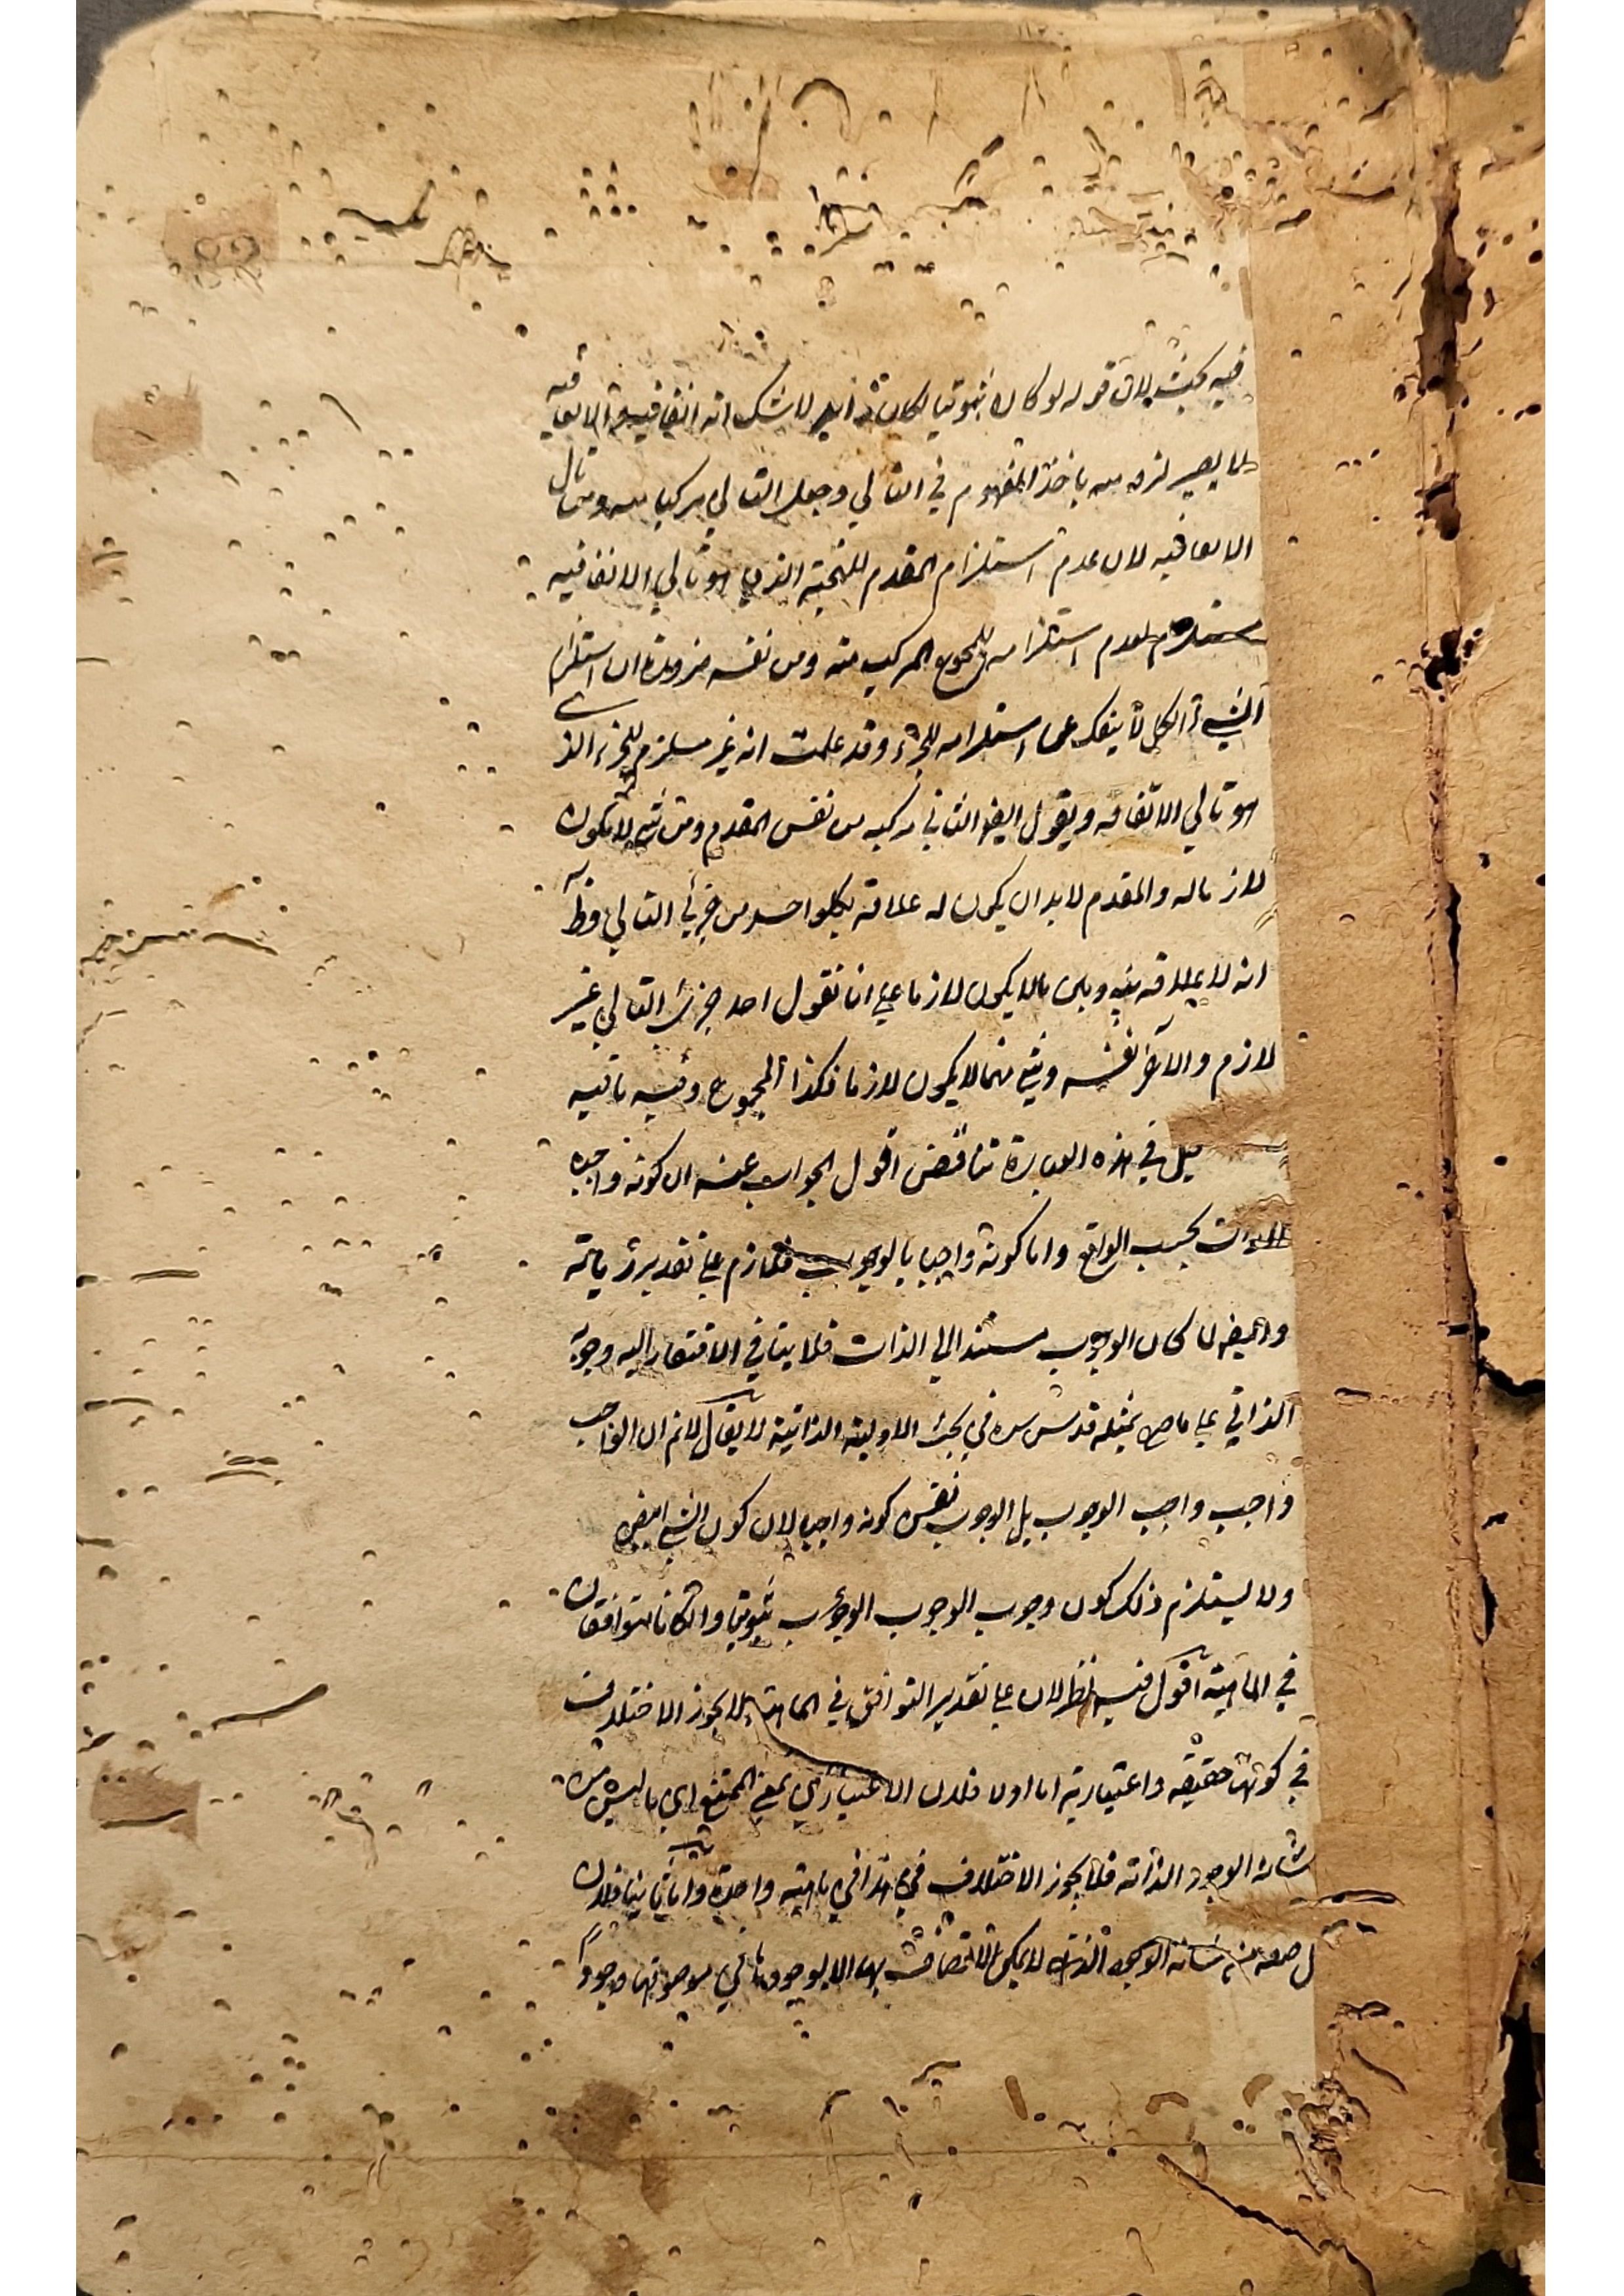 فيه بحث لان قوله لو كان ثبوتيا لكان زايدا لا شك انه اتفاقية والاتفاقية
لا يصير لزومية باخذ المفهوم في التالي وجعل التالي مركبا منه ومن تالي
الاتفاقية لان عدم استلزام المقدم للنتيجة الذي هو تالي الاتفاقية
مستلزم لعدم استلزامه للمجموع المركب منه ومن نفسه ضرورة ان استلزام
الشيء الكل لا ينفك عن استلزامه للجزء وقد علمت انه غير مستلزم للجزء الذي
هو تالي الاتفاقيه ويقول ايضا التالي مركب من نفس المقدم ومن شيء لا يكون
لازما له والمقدم لا بد ان يكون له علاقة بكل واحد من جزئي التالي وظ
انه لا علاقة بينه وبين ما لا يكون لازما على انا نقول احد جزئي التالي غير
لازم والآخر نفسه وشيء منهما لا يكون لازما فكذا المجموع وفيه ما فيه
قيل في هذه العبارة تناقض اقول الجواب عنه ان كونه واجبا
بالذات بحسب الواقع واما كونه واجبا بالوجوب فلازم على تقدير زيادته
وايضا لما كان الوجوب مستندا الى الذات فلا ينافي الافتقار اليه وجوبه
الذاتي على ما مر بمثله قدس سره في بحث الاولية الذاتية لا يقال لا نم ان الواجب
واجب واجب الوجوب بل الوجوب نفس كونه واجبا لان كون الشيء ابيض
ولا يستلزم ذلك كون وجوب الوجوب الوجوب ثبوتيا وان كانا متوافقان
في الماهية اقول فيه نظر لان على تقدير التوافق في الماهية لا يجوز الاختلاف
في كونها حقيقية واعتبارية اما اولا فلان الاعتباري بمعنى الممتنع اي ما ليس من
شانه الوجود لذاته فلا يجوز الاختلاف في هذا في ماهية واحدة واما ثانيا فلان
صفة من شانه الوجود لذاته لا يمكن الاتصاف بها الا بوجودها في موصوفها وجودا